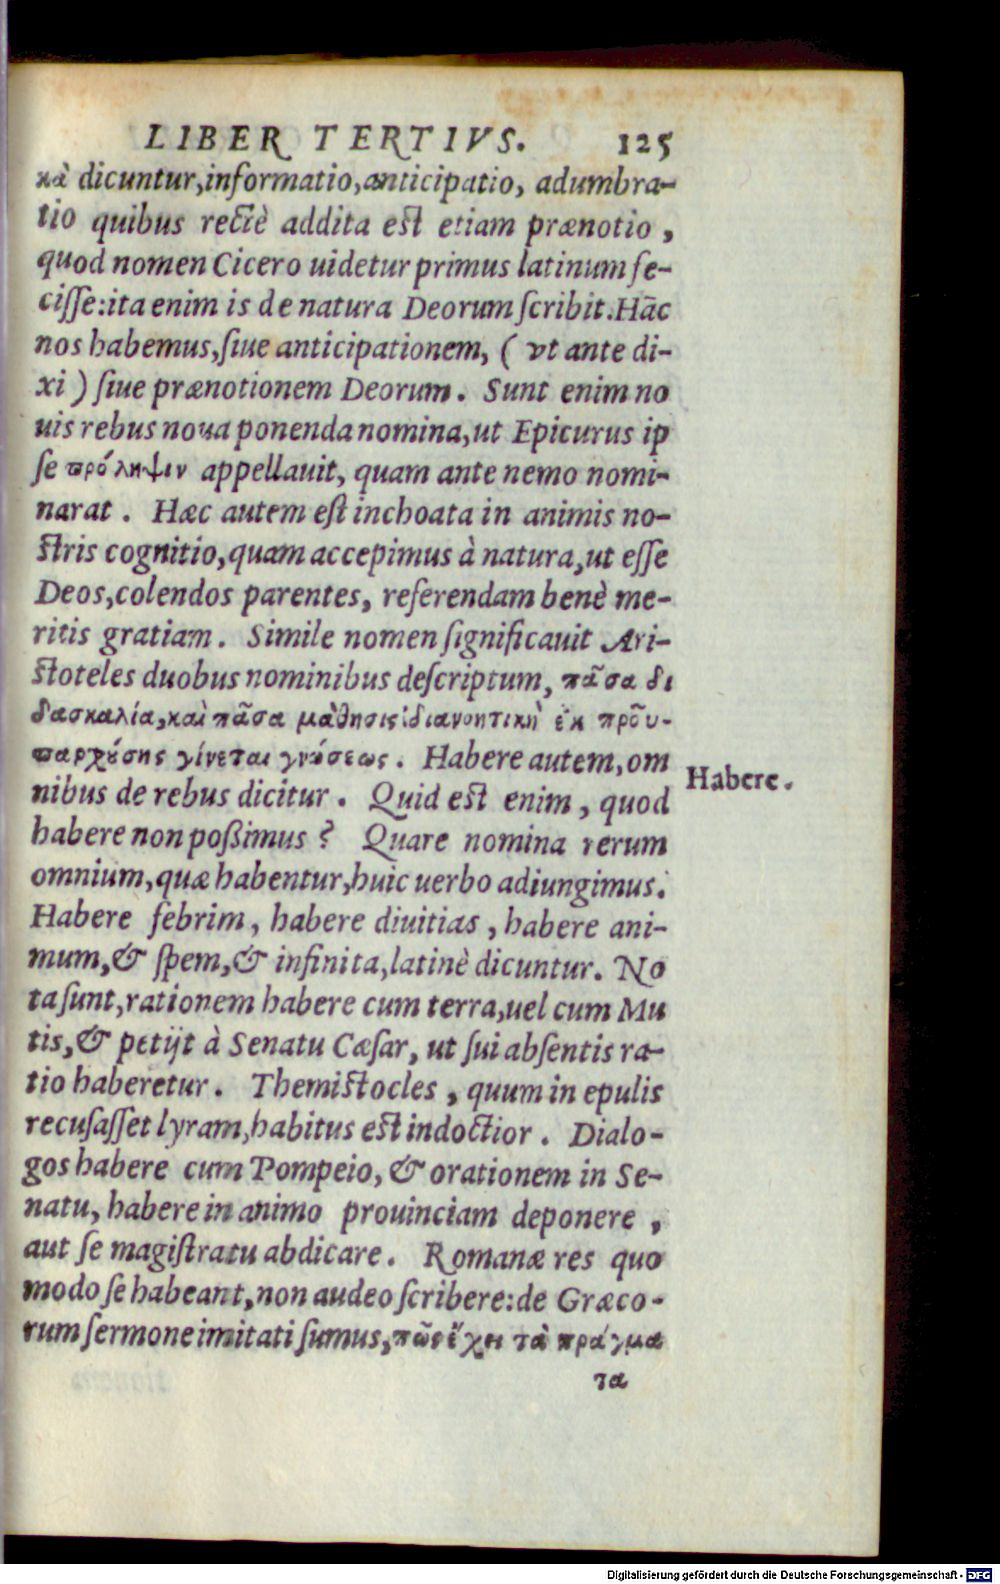 LIBER TERTIVS. 125
κὰ dicuntur, informatio, anticipatio, adumbra-
tio quibus rectè addita est etiam prænotio,
quod nomen Cicero uidetur primus latinum fe-
cisse: ita enim is de natura Deorum scribit. Hãc
nos habemus, siue anticipationem, ( vt ante di-
xi ) siue prænotionem Deorum. Sunt enim no
uis rebus noua ponenda nomina, ut Epicurus ip
se πρόληψιν appellauit, quam ante nemo nomi-
narat. Hæc autem est inchoata in animis no-
stris cognitio, quam accepimus à natura, ut esse
Deos, colendos parentes, referendam benè me-
ritis gratiam. Simile nomen significauit Ari-
stoteles duobus nominibus descriptum, πᾶσα δι
δασκαλία, καὶ πᾶσα μάθησις διανοητικὴ ἐκ προϋ-
παρχούσης γίνεται γνώσεως. Habere autem, om
nibus de rebus dicitur. Quid est enim, quod
Habere.
habere non poßimus? Quare nomina rerum
omnium, quæ habentur, huic uerbo adiungimus.
Habere febrim, habere diuitias, habere ani-
mum, & spem, & infinita, latinè dicuntur. No
ta sunt, rationem habere cum terra, uel cum Mu
tis, & petijt à Senatu Cæsar, ut sui absentis ra-
tio haberetur. Themistocles, quum in epulis
recusasset lyram, habitus est indoctior. Dialo-
gos habere cum Pompeio, & orationem in Se-
natu, habere in animo prouinciam deponere,
aut se magistratu abdicare. Romanæ res quo
modo se habeant, non audeo scribere: de Græco-
rum sermone imitati sumus, πῶς ἔχει τὰ πράγμα
τα
Digitalisierung gefördert durch die Deutsche Forschungsgemeinschaft - DFG